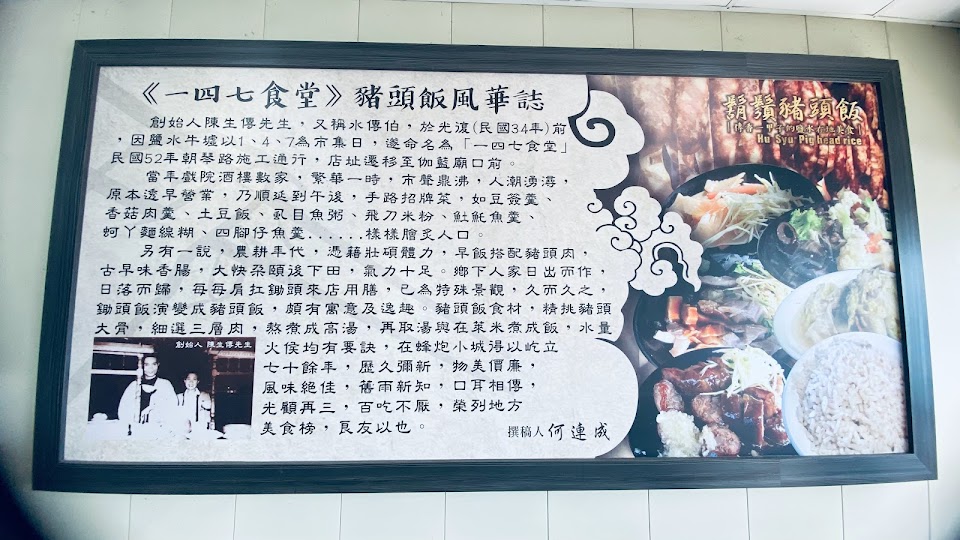 《一四七食堂》豬頭飯風華誌
創始人陳生傳先生，又稱水傳伯，於光復(民國34年)前
，因鹽水牛墟以1、4、7為市集日，遂命名為「一四七食堂」
民國52年朝琴路施工通行，店址遷移至伽藍廟口前。
當年戲院酒樓數家，繁華一時，市聲鼎沸，人潮湧潯，
原本透早營業，乃順延到午後，手路招牌菜，如豆簽羹、
香菇肉羹、土豆飯、虱目魚粥、飛刀米粉、魠魠魚羹、
蚵丫麵線糊、四腳仔魚羹......樣樣膾炙人口。
另有一說，農耕年代，憑藉壯碩體力，早飯搭配豬頭肉，
古早味香腸，大快朶頤後下田，氣力十足。鄉下人家日出而作，
日落而歸，每每肩扛鋤頭來店用膳，已為特殊景觀，久而久之，
鋤頭飯演變成豬頭飯，頗有寓意及逸趣。豬頭飯食材，精挑豬頭
大骨，細選三層肉，熬煮成高湯，再取湯與在萊米煮成飯，水量
火侯均有要訣，在蜂炮小城得以屹立
七十餘年，歷久彌新，物美價廉，
風味絕佳，舊雨新知，口耳相傳，
光顧再三，百吃不厭，榮列地方
美食榜，良友以也。
撰稿人 何連成
創始人 陳生傳先生
鬍鬚豬頭飯
Hu Syu Pig head rice